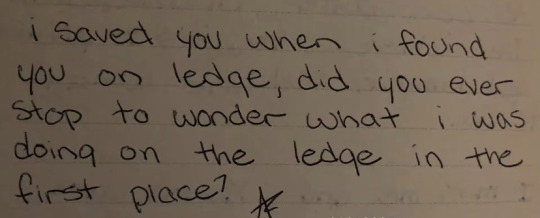 i saved you when i found
you on ledge, did you ever
stop to wonder what i was
doing on the ledge in the
first place?